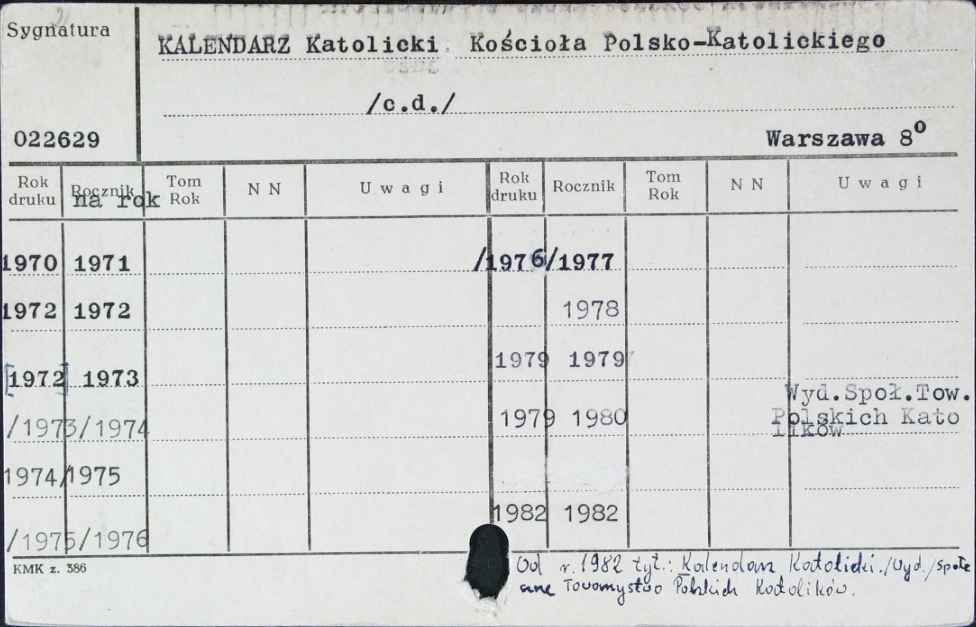 Sygnatura
KALENDARZ Katolicki Kościoła Polsko-Katolickiego
/c.d./
022629
Warszawa 8º
Rok druku Rocznik Tom Rok N N Uwagi Rok druku Rocznik Tom Rok N N Uwagi
na rok
1970 1971 /1976/1977
1972 1972 1978
[1972] 1973 1979 1979
Wyd.Społ.Tow.
/1973/1974 1979 1980 Polskich Kato
lików
1974/1975
1982 1982
/1975/1976
KMK z. 386
Od r. 1982 tyt.: Kalendarz Katolicki./Wyd./Społe
czne Towarzystwo Polskich Katolików.